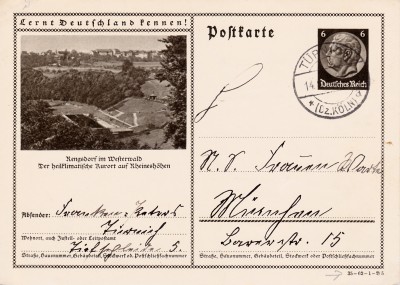 Lernt Deutschland kennen!
Postkarte
6 6
Deutsches Reich
TÜR
14.
(BZ.KÖLN)
Rengsdorf im Westerwald
Der heilklimatische Kurort auf Rheineshöhen
N. S. Frauen Warte
München
Barerstr. 15
Absender: Franken, Peters
Türnich
Wohnort, auch Zustell- oder Leitpostamt
5.
Straße, Hausnummer, Gebäudeteil, Stockwerk od. Postschließfachnummer
Straße, Hausnummer, Gebäudeteil, Stockwerk oder Postschließfachnummer